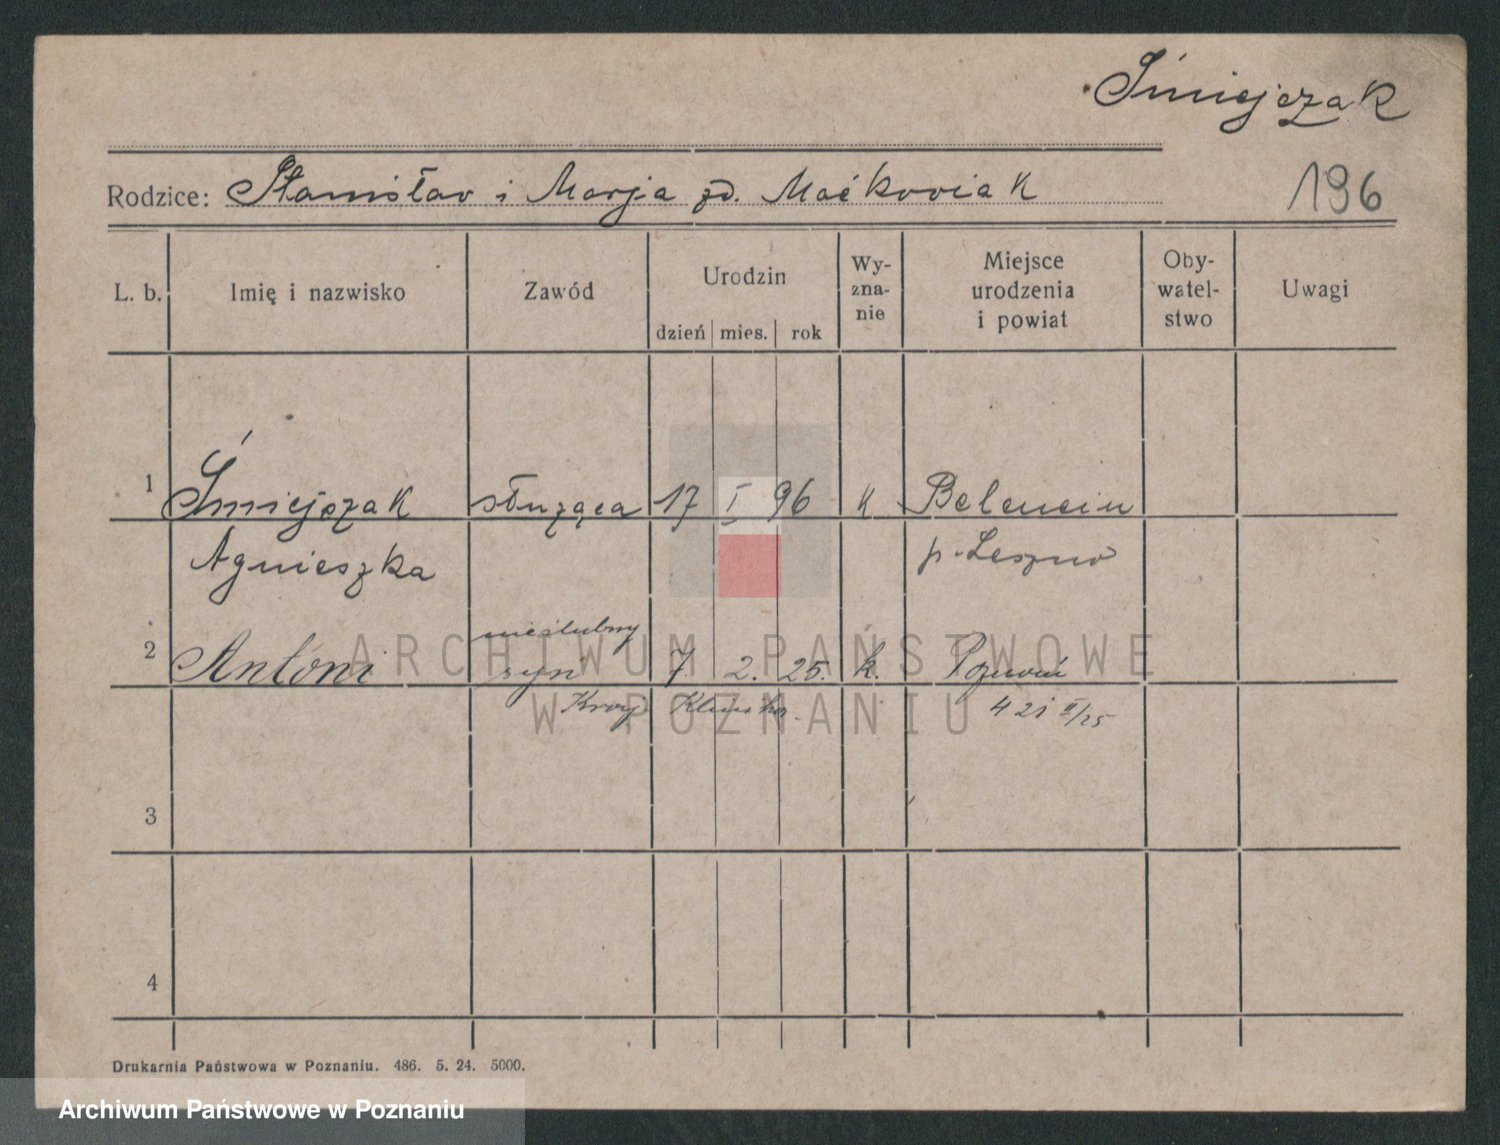 Śmiejczak
Rodzice: Stanisław i Marja zd. Maćkowiak
196
L. b. Imię i nazwisko Zawód Urodzin dzień mies. rok Wy-zna-nie Miejsce urodzenia i powiat Oby-watel-stwo Uwagi
1 Śmiejczak służąca 17 I 96 k Belencin
Agnieszka p. Leszno
nieślubny
2 Antoni syn 7 2. 25. k. Poznań
421 II/25
3
4
Drukarnia Państwowa w Poznaniu. 486. 5. 24. 5000.
ARCHIWUM PAŃSTWOWE
W POZNANIU
Archiwum Państwowe w Poznaniu